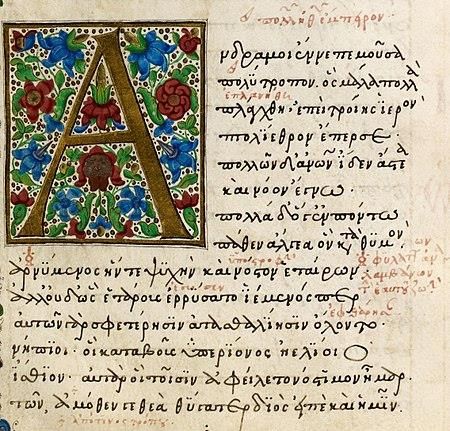 Ανδρα μοι ἔννεπε μοῦσα
πολύτροπον. ὃς μάλα πολλὰ
ἐπλανήθη
πλάγχθη. ἐπεὶ τροίης ἱερὸν
πτολίεθρον ἔπερσε.
πολλῶν δ' ἀνθρώπων ἴδεν ἄστεα
καὶ νόον ἔγνω
πολλὰ δ' ὅγ' ἐν πόντω
πάθεν ἄλγεα ὃν κατὰ θυμὸν
ἀρνύμενος ἥν τε ψυχὴν καὶ νόστον ἑταίρων
ἔσωσεν
ἀλλ' οὐδ' ὣς ἑτάρους ἐρρύσατο ἱέμενός περ
αὐτῶν γὰρ σφετέρησιν ἀτασθαλίησιν ὄλοντο.
νήπιοι. οἳ κατὰ βοῦς ὑπερίονος ἠελίοιο
ἤσθιον. αὐτὰρ ὁ τοῖσιν ἀφείλετο νόστιμον ἦμαρ.
τῶν ἁμόθεν γε θεὰ θύγατερ διὸς εἰπὲ καὶ ἡμῖν.